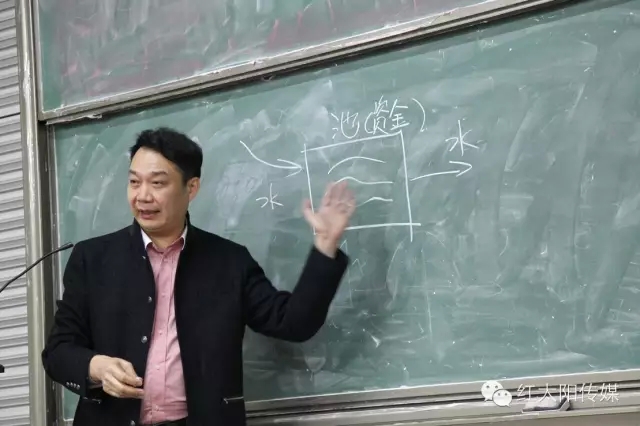 池(资金)
水
水
红人阳传媒